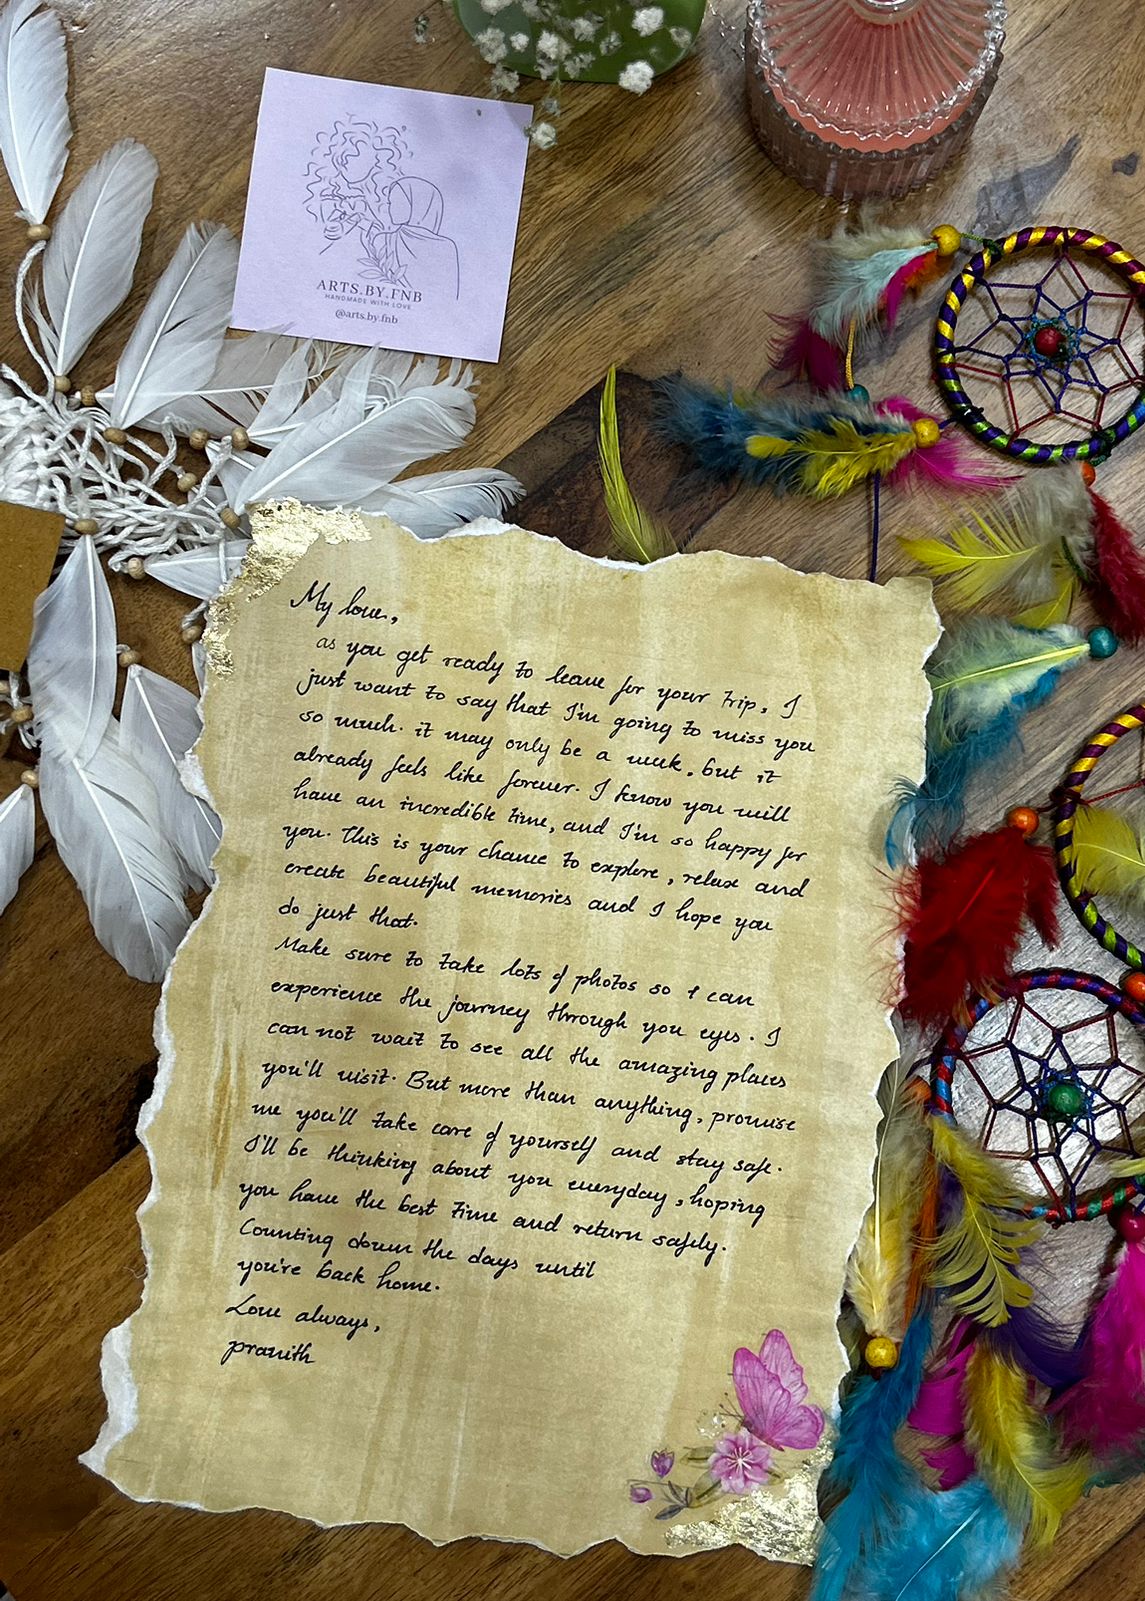 ARTS.BY.FNB
HANDMADE WITH LOVE
@arts.by.fnb
My love,
as you get ready to leave for your trip, I
just want to say that I'm going to miss you
so much. it may only be a week, but it
already feels like forever. I know you will
have an incredible time, and I'm so happy for
you. This is your chance to explore, relax and
create beautiful memories and I hope you
do just that.
Make sure to take lots of photos so I can
experience the journey through you eyes. I
can not wait to see all the amazing places
you'll visit. But more than anything, promise
me you'll take care of yourself and stay safe.
I'll be thinking about you everyday, hoping
you have the best time and return safely.
Counting down the days until
you're back home.
Love always,
pranith